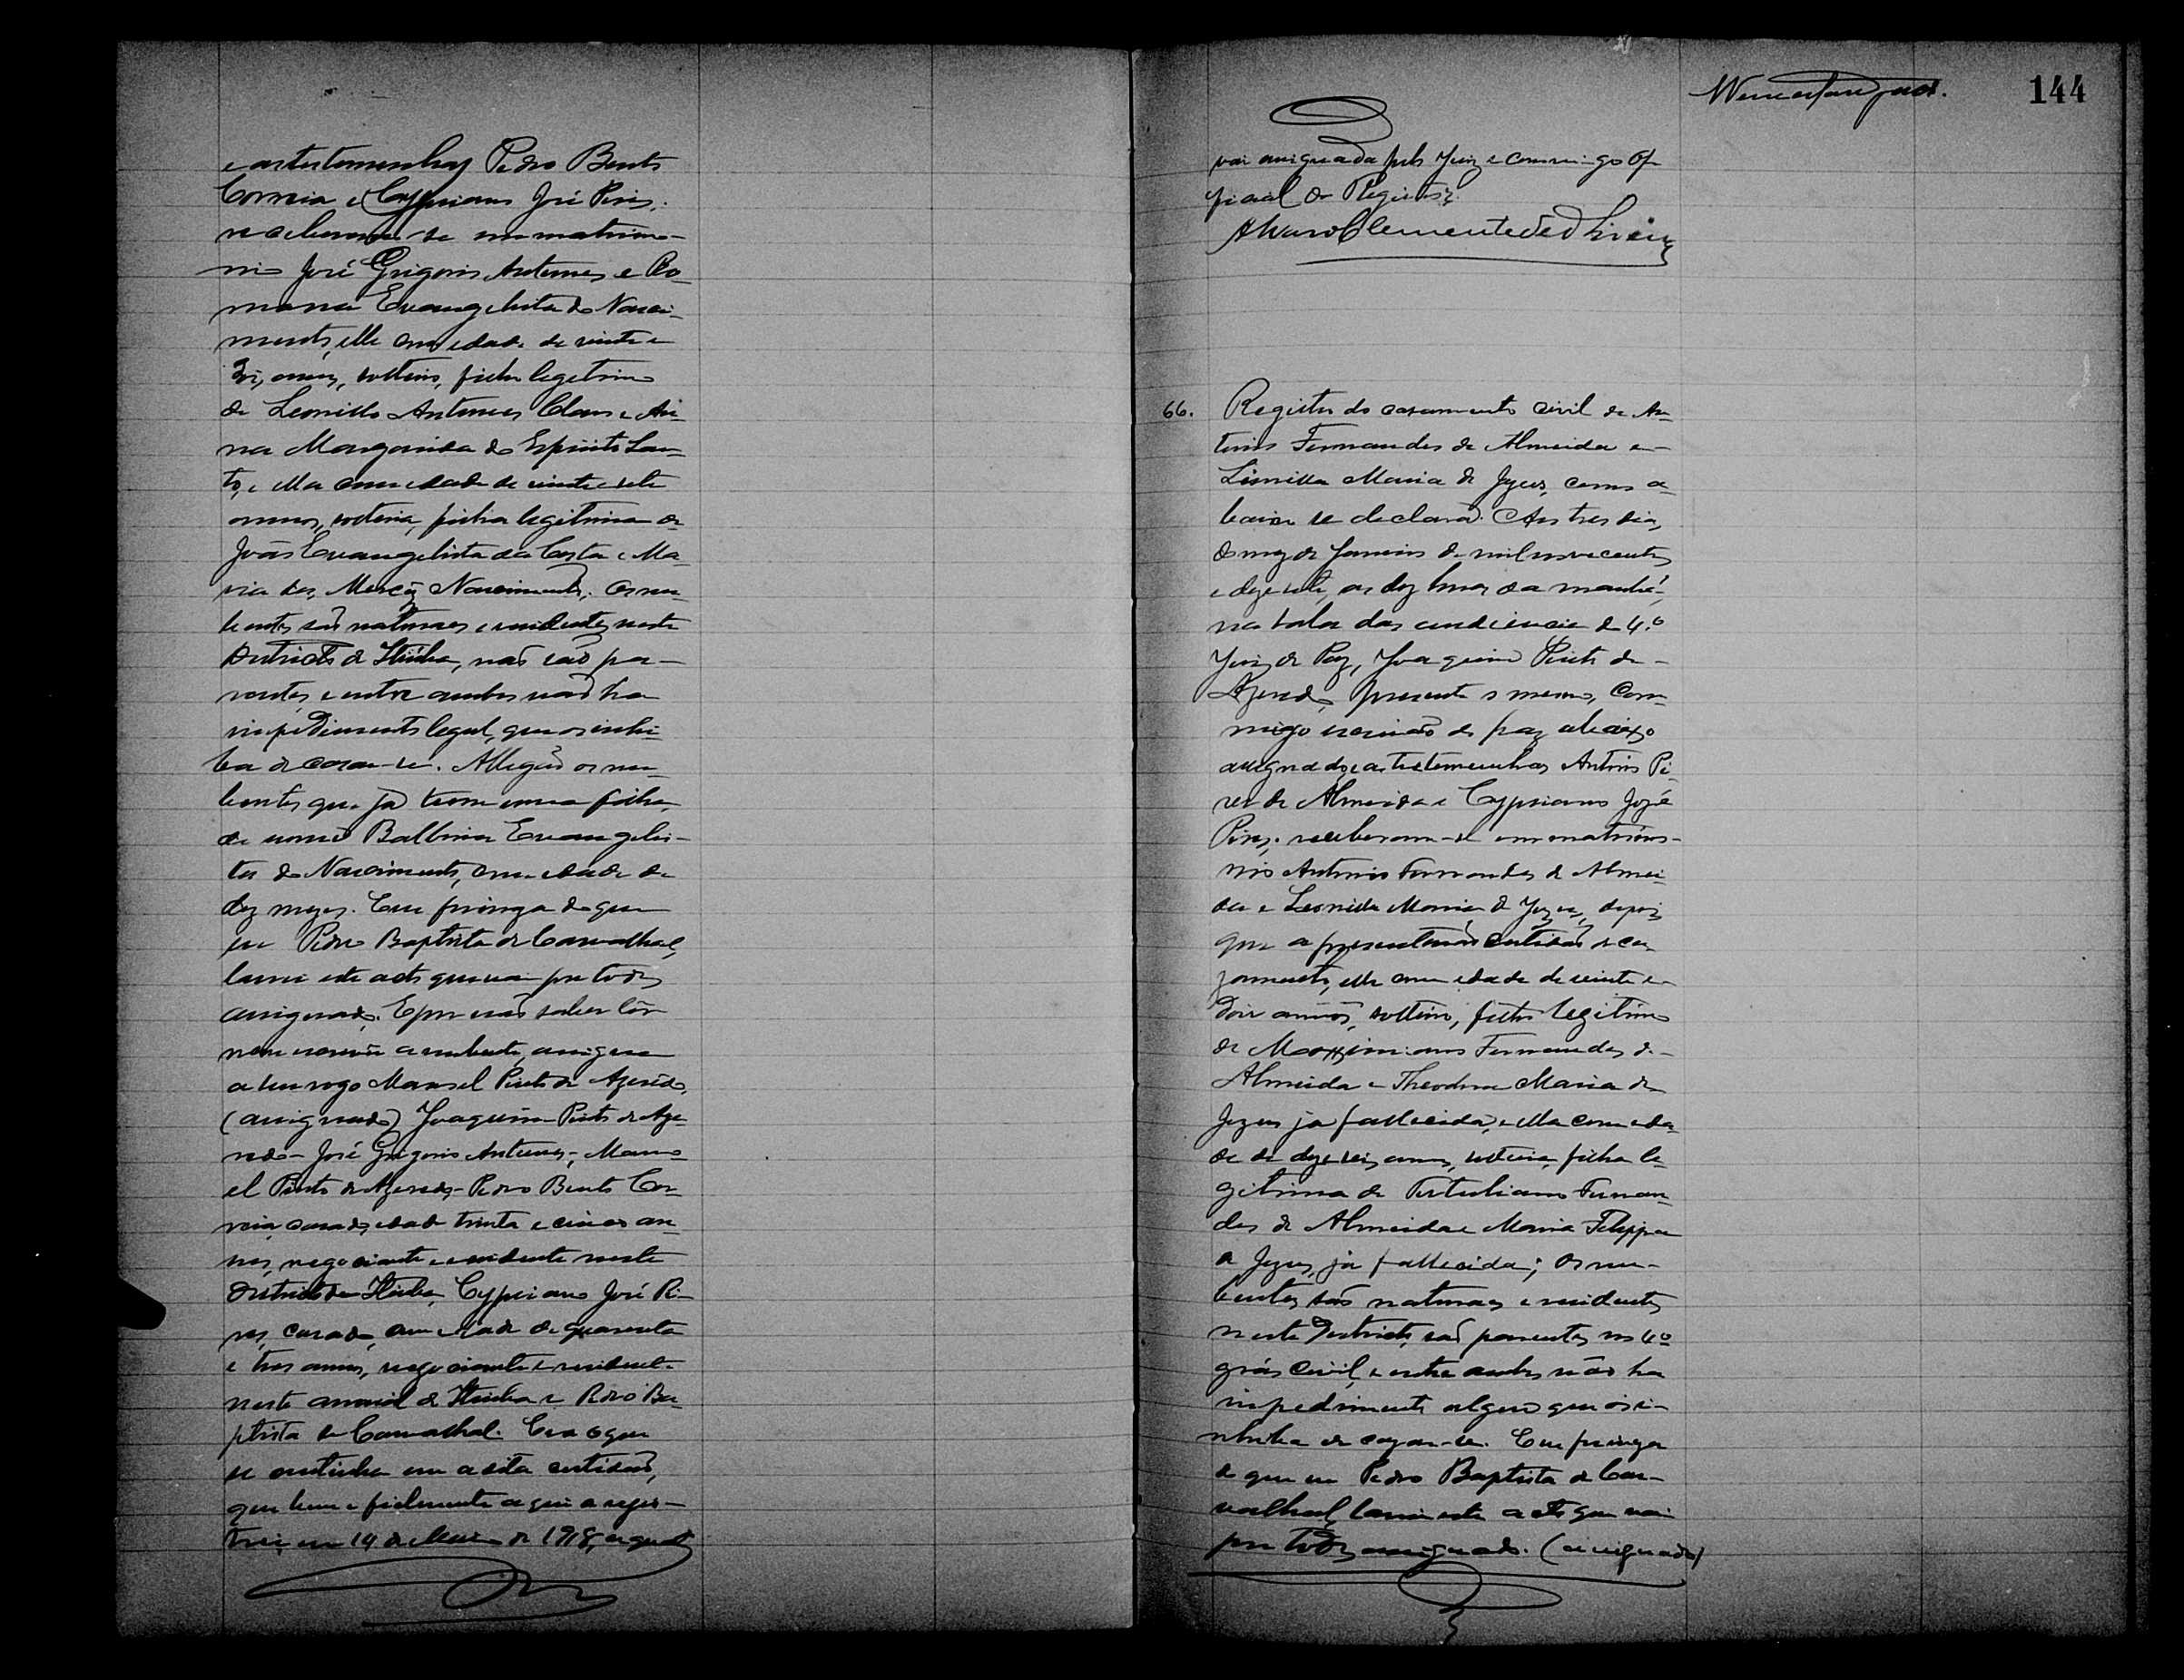 e as testemunhas Pedro Bento
Correia e Cypriano José Pires,
receberam-se em matrimo-
nio José Grigorio Antunes e Ro-
mana Evangelista do Nasci-
mento, elle com edade de vinte e
annos, solteiro, filho legitimo
de Leonillo Antunes e An-
na Margarida do Espirito San-
to, e ella com edade de vinte e sete
annos, solteira, filha legitima de
João Evangelista da Costa e Ma-
ria das Mercês Nascimento. Os nu-
bentes são naturaes e residentes neste
Districto de não são pa-
rentes, e entre ambos não ha
impedimento legal, que os inhi-
ba de casar-se. Allegão os nu-
bentes que já teem uma filha,
de nome Balbina Evangelis-
ta do Nascimento, com edade de
dez mezes. Em firmeza do que
eu Pedro Baptista de Carvalhal,
lavrei este acto que vai por todos
assignado. E por não saber ler
nem escrever a nubente, assigna
a seu rogo Manoel Pinto de Azeredo,
(assignado) Joaquim Pinto de Aze-
redo - José Grigorio Antunes, Mano-
el Pinto de Azeredo - Pedro Bento Cor-
reia, casado, edade trinta e cinco an-
nos, negociante e residente neste
Districto de Cypriano José Pi-
res, casado, com edade de quarenta
e tres annos, negociante e residente
neste arraial de e Pedro Ba-
ptista de Carvalhal. Era o que
se continha em a dita certidão,
que bem e fielmente aqui a regis-
trei, em 14 de Maio de 1918, a qual
144
vai assignada pelo Juiz e commigo Of-
ficial do Registro.
Alvaro Clemente de Oliveira
66. Registro do casamento civil de An-
tonio Fernandes de Almeida e
Leonilla Maria de Jezus, como a-
baixo se declara. Aos tres dias
do mez de Janeiro de mil novecentos
e dezesete, as dez horas da manhã,
na sala das audiencias do 4.º
Juiz de Paz, Joaquim Pinto de
Azeredo, presente o mesmo, com-
migo escrivão de paz abaixo
assignado, e as testemunhas Antonio Pi-
res de Almeida e Cypriano José
Pires, receberam-se em matrimo-
nio Antonio Fernandes de Almei-
da e Leonilla Maria de Jezus, depois
que apresentarão certidão de ca-
zamento, elle com edade de vinte e
dois annos, solteiro, filho legitimo
de Maximiano Fernandes de
Almeida e Theodora Maria de
Jezus já fallecida, e ella com eda-
de de dezeseis annos, solteira, filha le-
gitima de Tertuliano Fernan-
des de Almeida e Maria Filippa
de Jezus, já fallecida; Os nu-
bentes são naturaes e residentes
neste Districto, são parentes no 4º
gráo civil, e entre ambos não ha
impedimento algum que os i-
nhiba de cazar-se. Em firmeza
do que eu Pedro Baptista de Car-
valhal, lavrei este acto que vai
por todos assignado. (assignado)